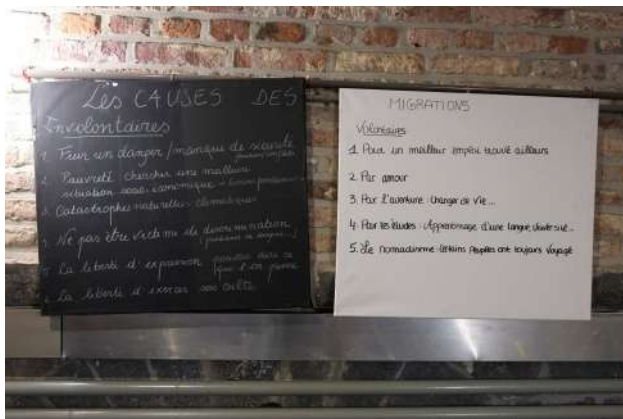 Les CAUSES DES
Involontaires
1. Fuir un danger / manque de sécurité
2. Pauvreté : chercher une meilleure
situation socio-économique
3. Catastrophes naturelles - climatiques
Ne pas être victime de discrimination
La liberté d'expression pouvoir dire ce
que l'on pense
La liberté d'exercer son culte
MIGRATIONS
Volontaires
1 Pour un meilleur emploi trouvé ailleurs
2. Par amour
3. Par l'aventure : Changer de Vie ...
4. Par les études : Apprentissage d'une langue, Université...
5. Le nomadisme : Certains Peuples ont toujours Voyagé